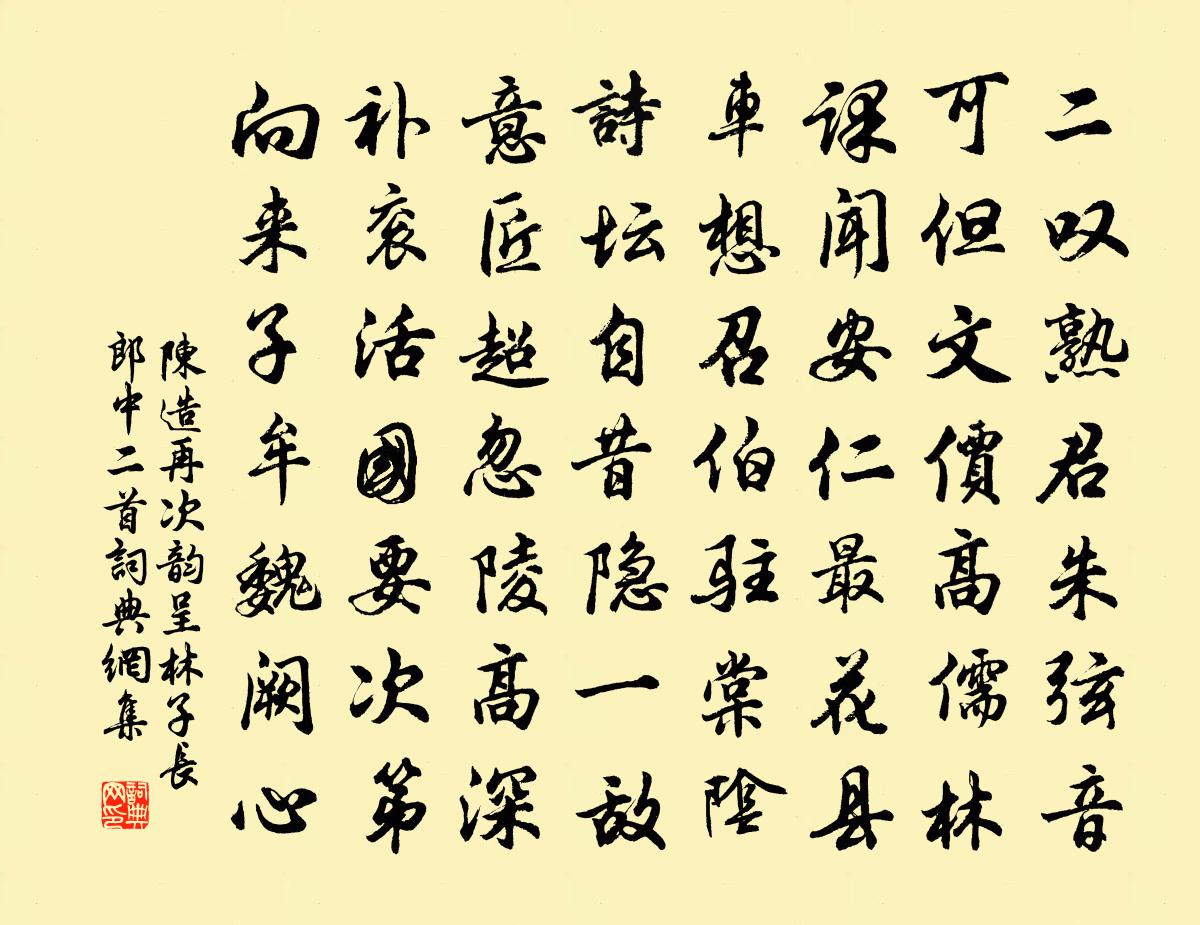 二叹熟君朱弦音
可但文價高儒林
課闻安仁最花县
車想召伯駐棠陰
詩坛自昔隐一敌
意匠超忽陵高深
补衮活國要次第
向来子牟魏阙心
陳造再次韵呈林子長
郎中二首詞典網集
詞典网印